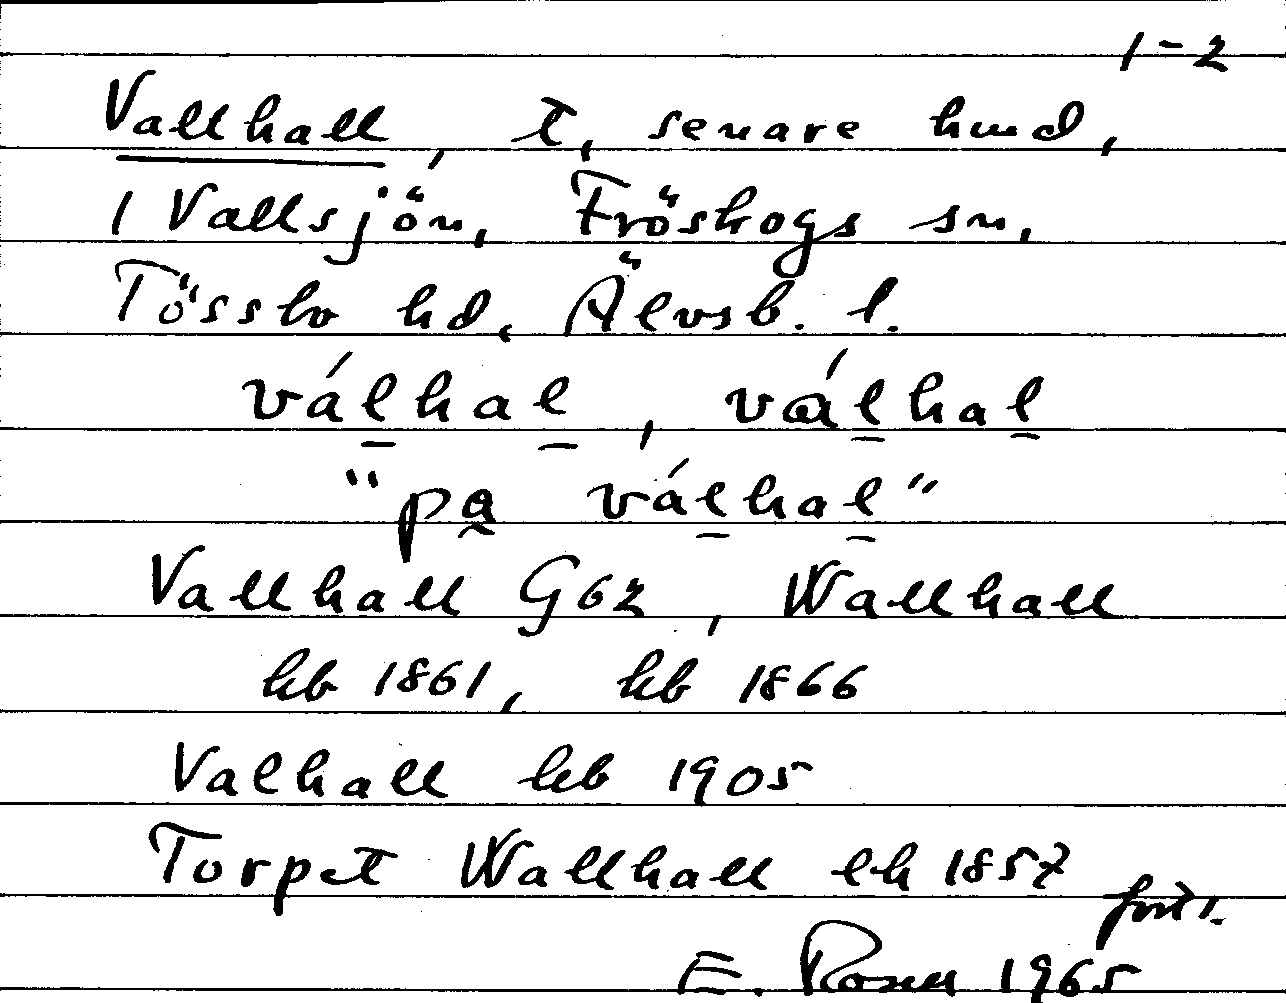 1-2
Vallhall, t, senare hmd,
1 Vallsjön, Fröskogs sn,
Tössbo hd, Älvsb. l.
vál̠hal̠, vɑ́l̠hal̠
"pa̰ vál̠hal̠"
Vallhall G62, Wallhall
kb 1861, kb 1866
Valhall kb 1905
Torpet Wallhall lh 1857
forts.
E. Rosell 1965